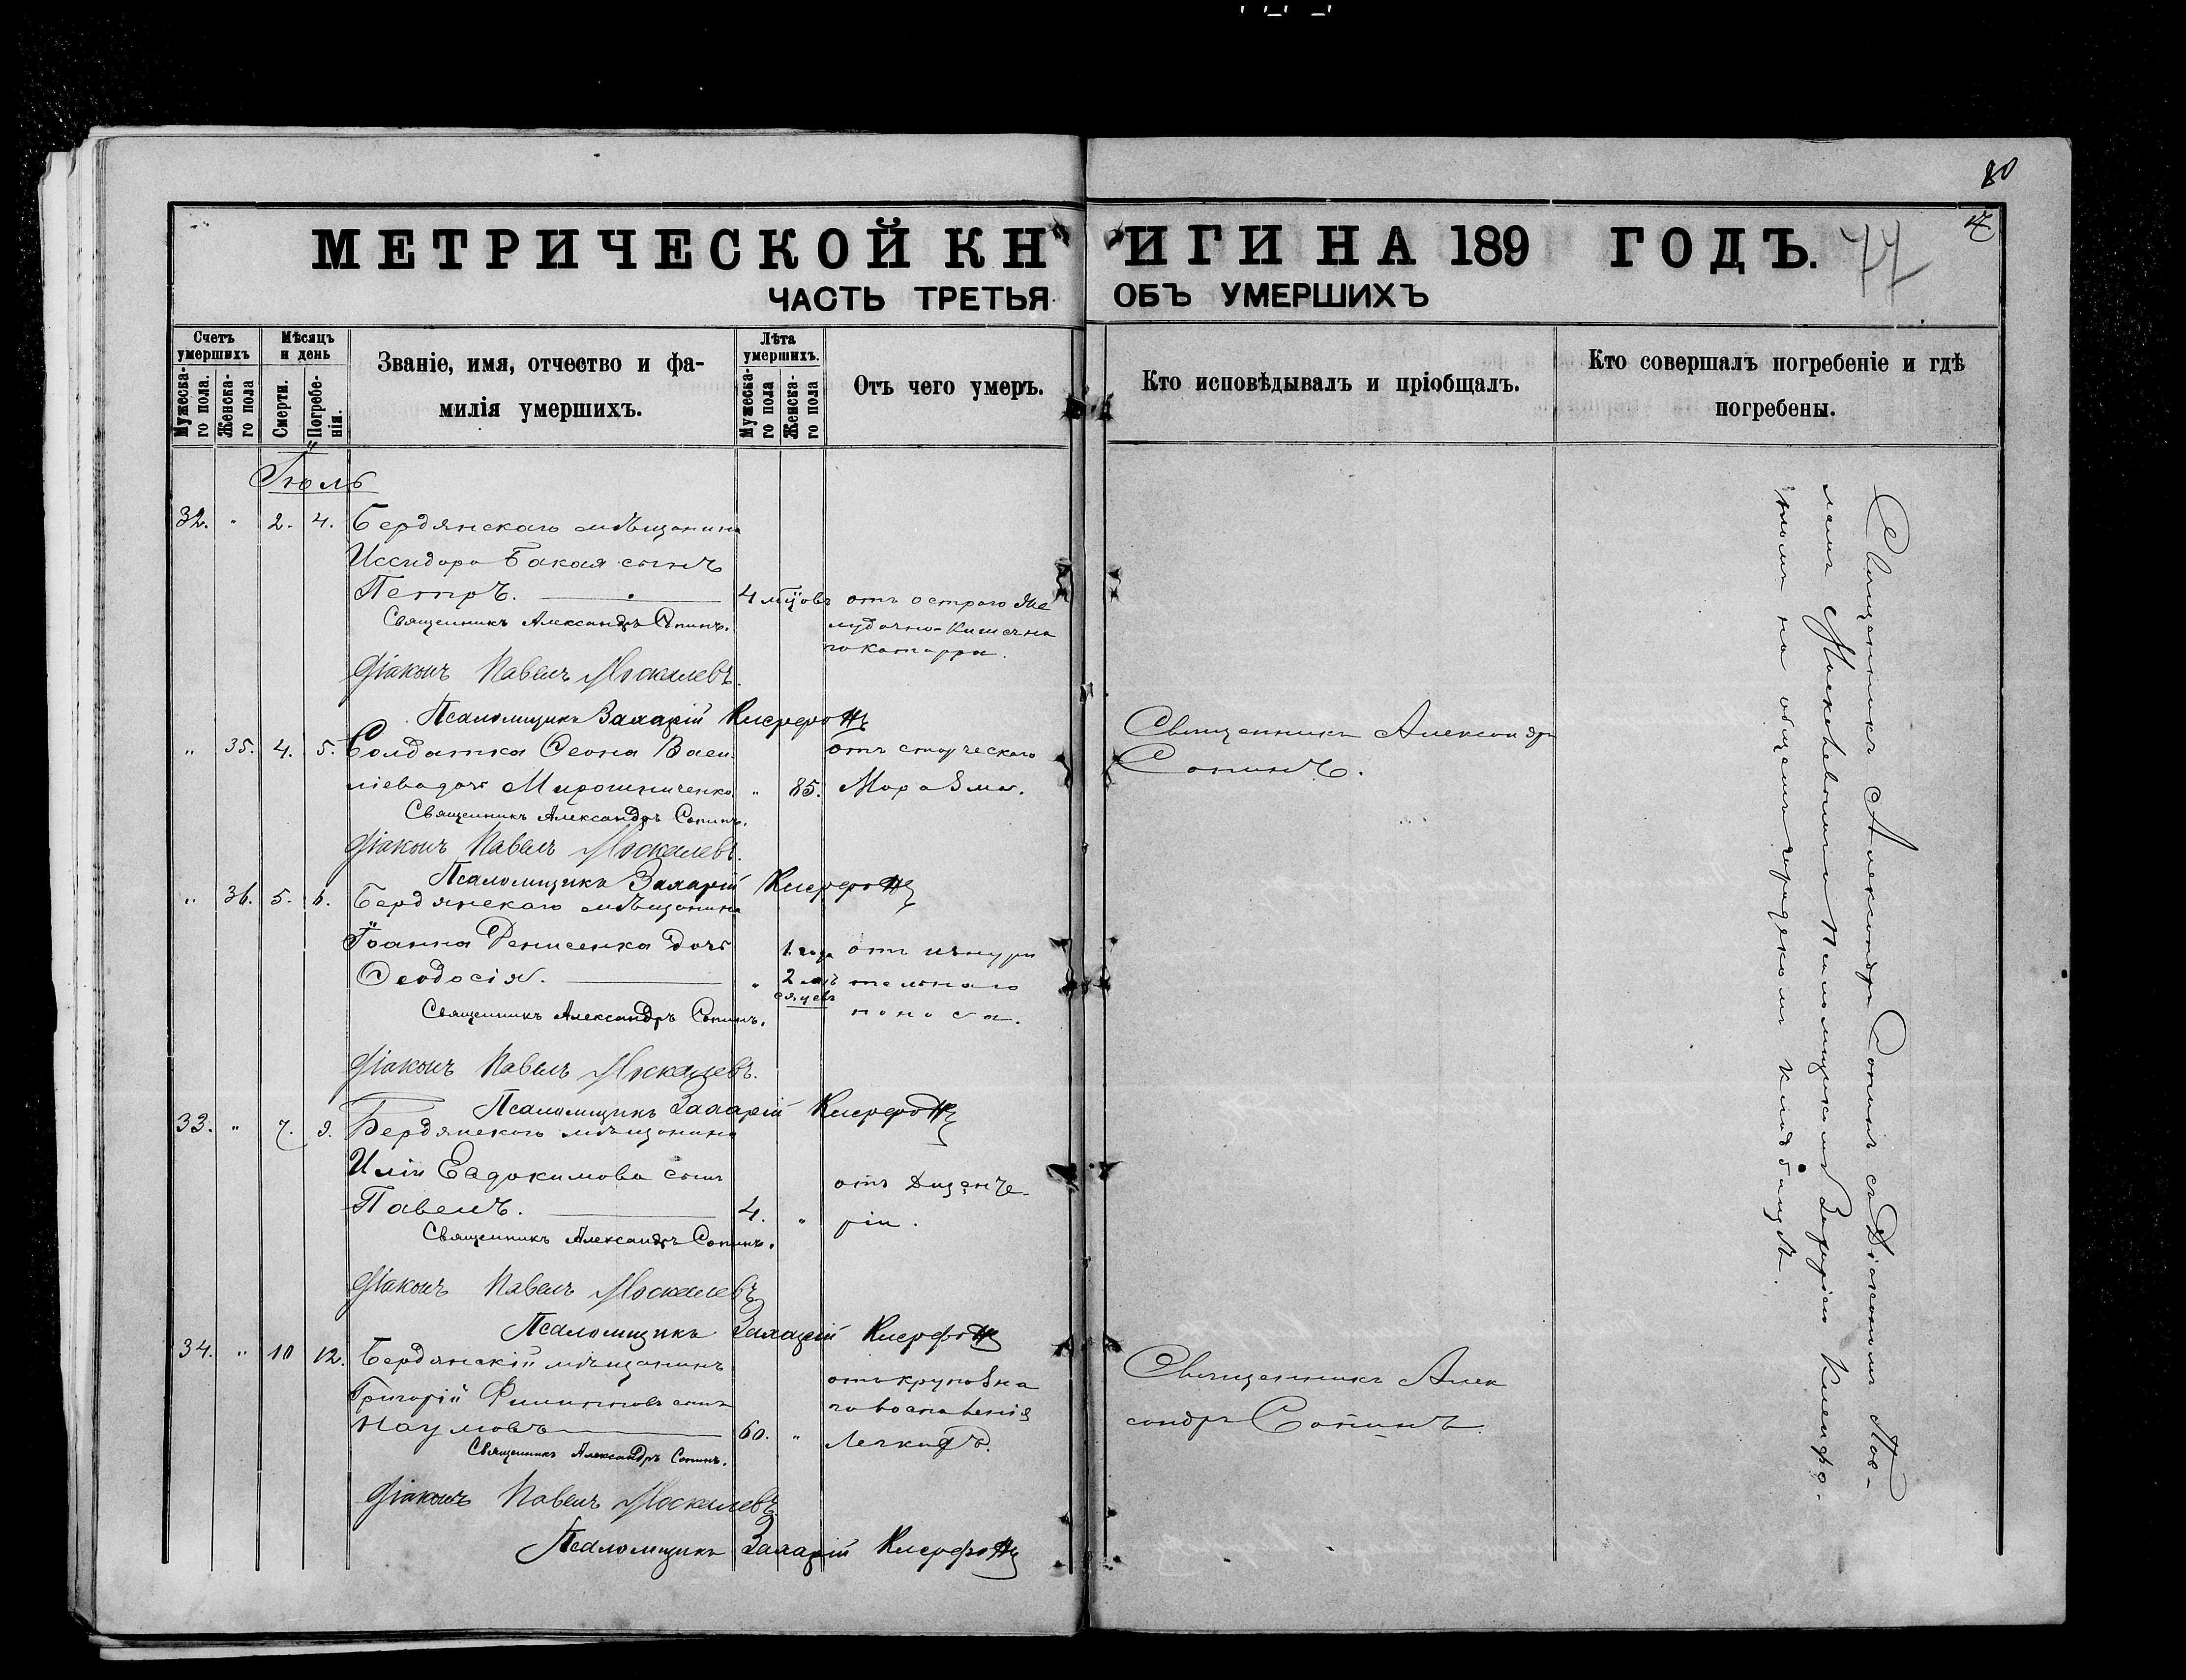 80
МЕТРИЧЕСКОЙ КНИГИ НА 189 ГОДЪ.
77
ЧАСТЬ ТРЕТЬЯ ОБЪ УМЕРШИХЪ
Счетъ умершихъ
Мужеска-го пола.
Женска-го пола
Мѣсяцъ и день
Смерти.
Погребе-нія.
Званіе, имя, отчество и фа-
милія умершихъ.
Лѣта умершихъ.
Мужеска-го пола
Женска-го пола
Отъ чего умеръ.
Кто исповѣдывалъ и пріобщалъ.
Кто совершалъ погребеніе и гдѣ
погребены.
Іюль
32. " 2. 4. Бердянскаго мѣщанина
Иссидора Бакая сынъ
Петръ. 4 мцовъ отъ остраго же
лудочно-кишечна
го катарра.
Священникъ Александръ Сопинъ.
Діаконъ Павелъ Москалевъ.
Псаломщикъ Захарій
" 35. 4. 5. Солдатка Ѳеона Васи
ліева дочь Мирошниченко " 85. отъ старческаго
Маразма.
Священникъ Александръ
Сопинъ.
Священникъ Александръ Сопинъ.
Діаконъ Павелъ Москалевъ.
Псаломщикъ Захарій
" 36. 5. 6. Бердянскаго мѣщанина
Іоанна Денисенка дочь
Ѳеодосія. " 1. года 2 мѣсяцевъ отъ изнури
тельнаго
поноса.
Священникъ Александръ Сопинъ.
Діаконъ Павелъ Москалевъ.
Псаломщикъ Захарій
33. " 7. 9. Бердянскаго мѣщанина
Иліи Евдокимова сынъ
Павелъ. 4. " отъ Дизенте-
ріи.
Священникъ Александръ Сопинъ.
Діаконъ Павелъ Москалевъ
Псаломщикъ Захарій
34. " 10 12. Бердянскій мѣщанинъ
Григорій Филипповъ сынъ
Наумовъ 60. " отъ крупозна
го воспаленія
Легкихъ.
Священникъ Алек
сандръ Сопинъ.
Священникъ Александръ Сопинъ.
Діаконъ Павелъ Москалевъ
Псаломщикъ Захарій
Священникъ Александръ Сопинъ съ Діакономъ Пав-
ломъ Москалевымъ и Псаломщикомъ Захаріемъ
на общемъ городскомъ кладбищѣ.